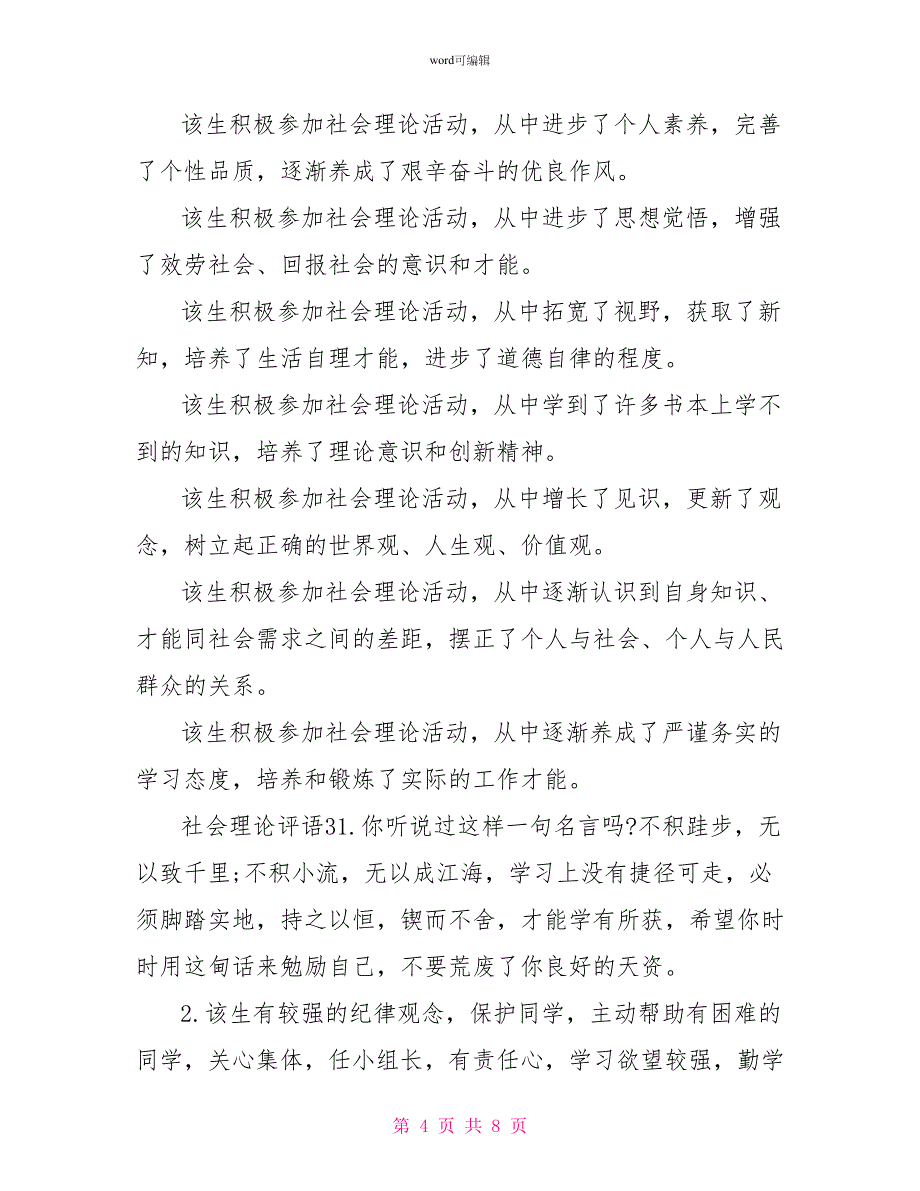 word可编辑
该生积极参加社会理论活动，从中进步了个人素养，完善
了个性品质，逐渐养成了艰辛奋斗的优良作风。
该生积极参加社会理论活动，从中进步了思想觉悟，增强
了效劳社会、回报社会的意识和才能。
该生积极参加社会理论活动，从中拓宽了视野，获取了新
知，培养了生活自理才能，进步了道德自律的程度。
该生积极参加社会理论活动，从中学到了许多书本上学不
到的知识，培养了理论意识和创新精神。
该生积极参加社会理论活动，从中增长了见识，更新了观
念，树立起正确的世界观、人生观、价值观。
该生积极参加社会理论活动，从中逐渐认识到自身知识、
才能同社会需求之间的差距，摆正了个人与社会、个人与人民
群众的关系。
该生积极参加社会理论活动，从中逐渐养成了严谨务实的
学习态度，培养和锻炼了实际的工作才能。
社会理论评语31.你听说过这样一句名言吗?不积跬步，无
以致千里;不积小流，无以成江海，学习上没有捷径可走，必
须脚踏实地，持之以恒，锲而不舍，才能学有所获，希望你时
时用这甸话来勉励自己，不要荒废了你良好的天资。
2.该生有较强的纪律观念，保护同学，主动帮助有困难的
同学，关心集体，任小组长，有责任心，学习欲望较强，勤学
第 4 页 共 8 页